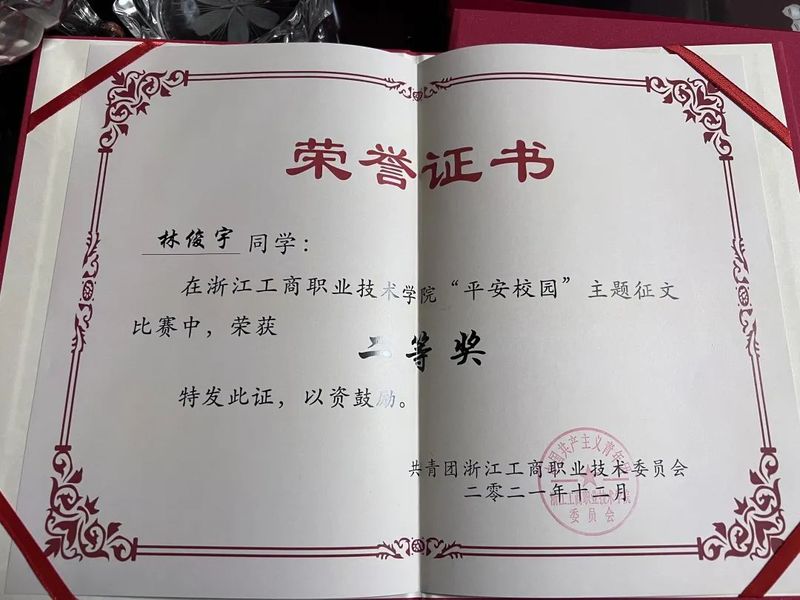 荣誉证书
林俊宇 同学：
在浙江工商职业技术学院“平安校园”主题征文
比赛中，荣获
二等奖
特发此证，以资鼓励。
共青团浙江工商职业技术委员会
二零二一年十二月
国共产主义青年
浙江工商职业技术学院
委员会